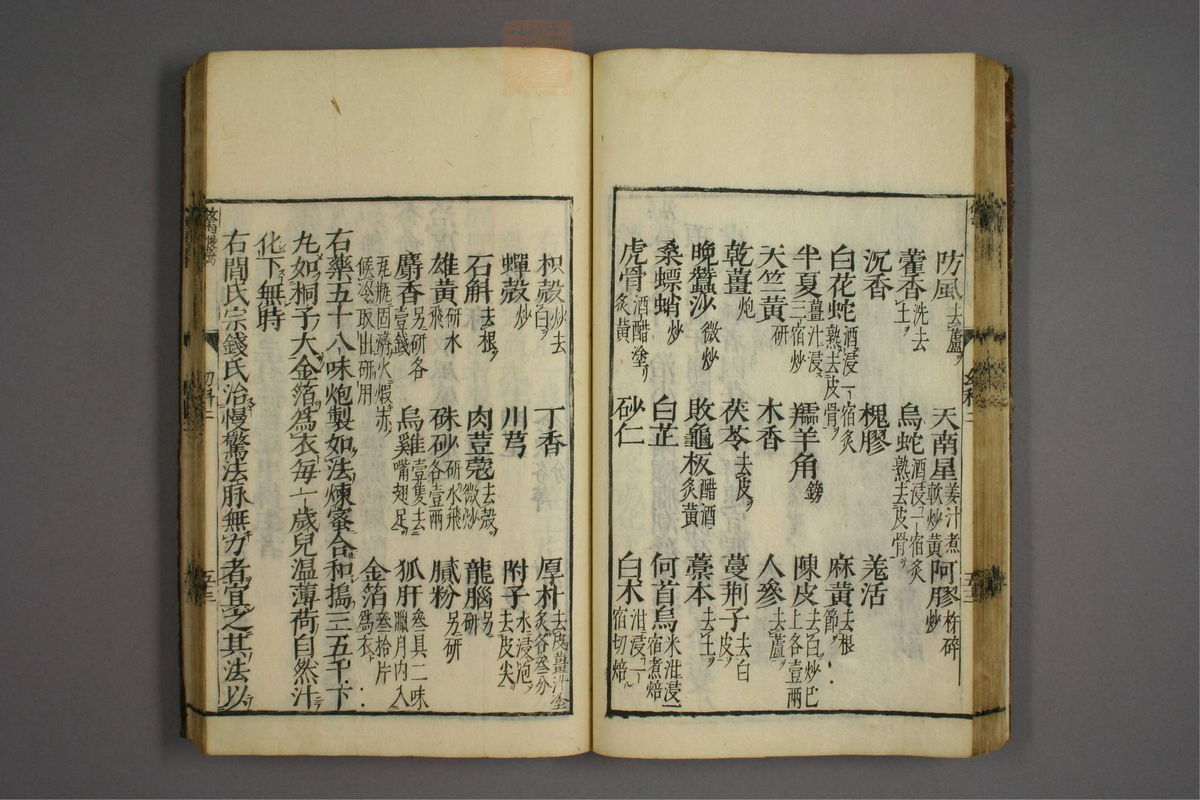 防風去蘆 天南星姜汁煮軟炒黄 阿膠炒
藿香洗去土 烏蛇酒浸一宿炙熟去皮骨
沉香 槐膠 羌活
白花蛇酒浸一宿炙熟去皮骨 麻黄去根節
半夏薑汁浸三宿炒 羚羊角鎊 陳皮去白炒巳上各壹兩
天竺黄研 木香 人參去蘆
乾薑炮 茯苓去皮 蔓荆子去白皮
晚蠶沙微炒 敗龜板醋酒炙黄 藁本去土
桑螵蛸炒 白芷 何首烏米泔浸一宿煮焙
虎骨酒醋塗炙黄 砂仁 白术泔浸一宿切焙
枳殼炒去白 丁香 厚朴去皮薑汁塗炙各叁分
蟬殼炒 川芎 附子水浸泡去皮尖
石斛去根 肉荳蔻去殼微炒 龍腦另研
雄黄研水飛 硃砂研水飛各壹兩 膩粉另研
麝香另研各壹錢 烏雞壹隻去嘴翅足 狐肝叁具二味臘月内入
瓦瓶固濟火煅赤候冷取出研用 金箔叁拾片爲衣
右藥五十八味炮製如法煉蜜合和搗三五千下
丸如桐子大金箔爲衣每一歲兒温薄荷自然汁
化下無時
右閻氏宗錢氏治慢驚法脉無力者宜之其法以